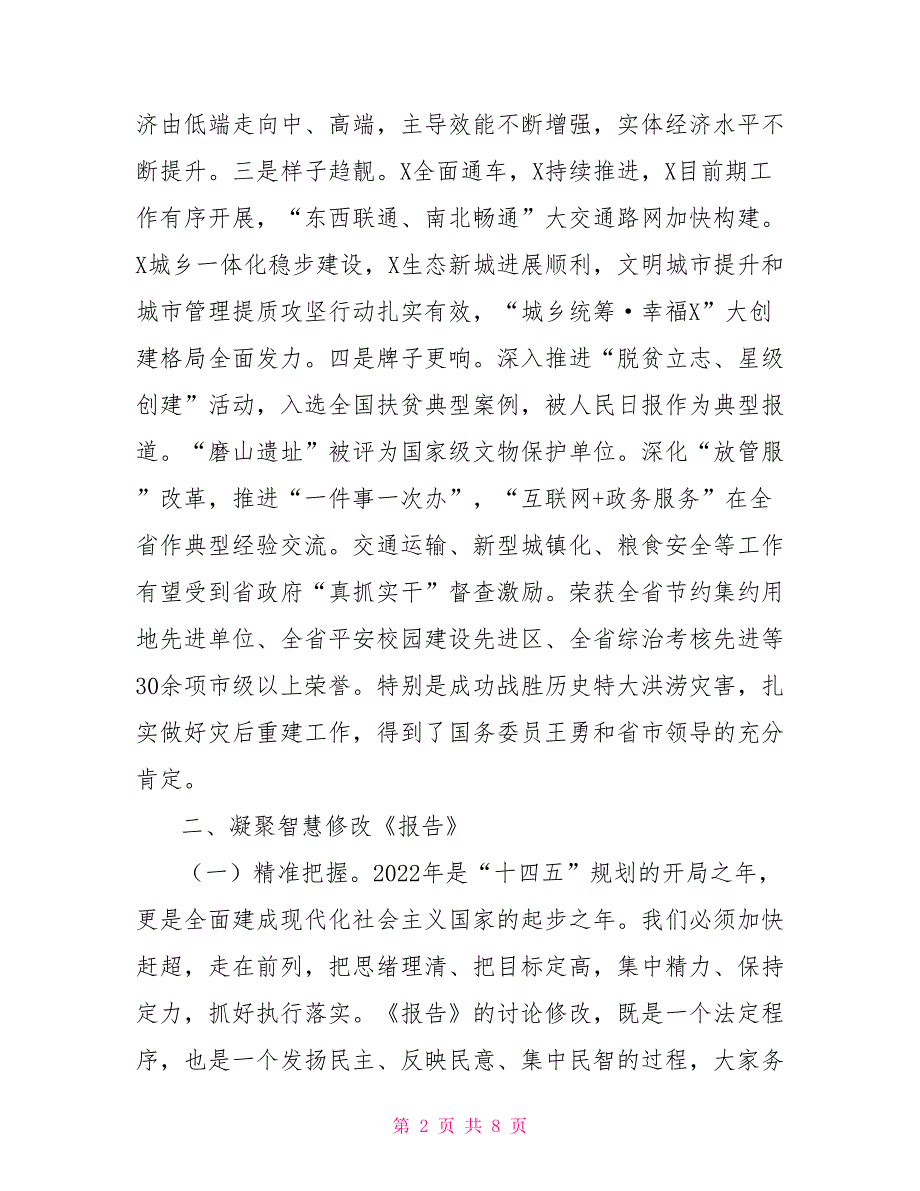 济由低端走向中、高端，主导效能不断增强，实体经济水平不
断提升。三是样子趋靓。X全面通车，X持续推进，X目前期工
作有序开展，“东西联通、南北畅通”大交通路网加快构建。
X城乡一体化稳步建设，X生态新城进展顺利，文明城市提升和
城市管理提质攻坚行动扎实有效，“城乡统筹·幸福X”大创
建格局全面发力。四是牌子更响。深入推进“脱贫立志、星级
创建”活动，入选全国扶贫典型案例，被人民日报作为典型报
道。“磨山遗址”被评为国家级文物保护单位。深化“放管服
”改革，推进“一件事一次办”，“互联网+政务服务”在全
省作典型经验交流。交通运输、新型城镇化、粮食安全等工作
有望受到省政府“真抓实干”督查激励。荣获全省节约集约用
地先进单位、全省平安校园建设先进区、全省综治考核先进等
30余项市级以上荣誉。特别是成功战胜历史特大洪涝灾害，扎
实做好灾后重建工作，得到了国务委员王勇和省市领导的充分
肯定。
二、凝聚智慧修改《报告》
（一）精准把握。2022年是“十四五”规划的开局之年，
更是全面建成现代化社会主义国家的起步之年。我们必须加快
赶超，走在前列，把思绪理清、把目标定高，集中精力、保持
定力，抓好执行落实。《报告》的讨论修改，既是一个法定程
序，也是一个发扬民主、反映民意、集中民智的过程，大家务
第 2 页 共 8 页